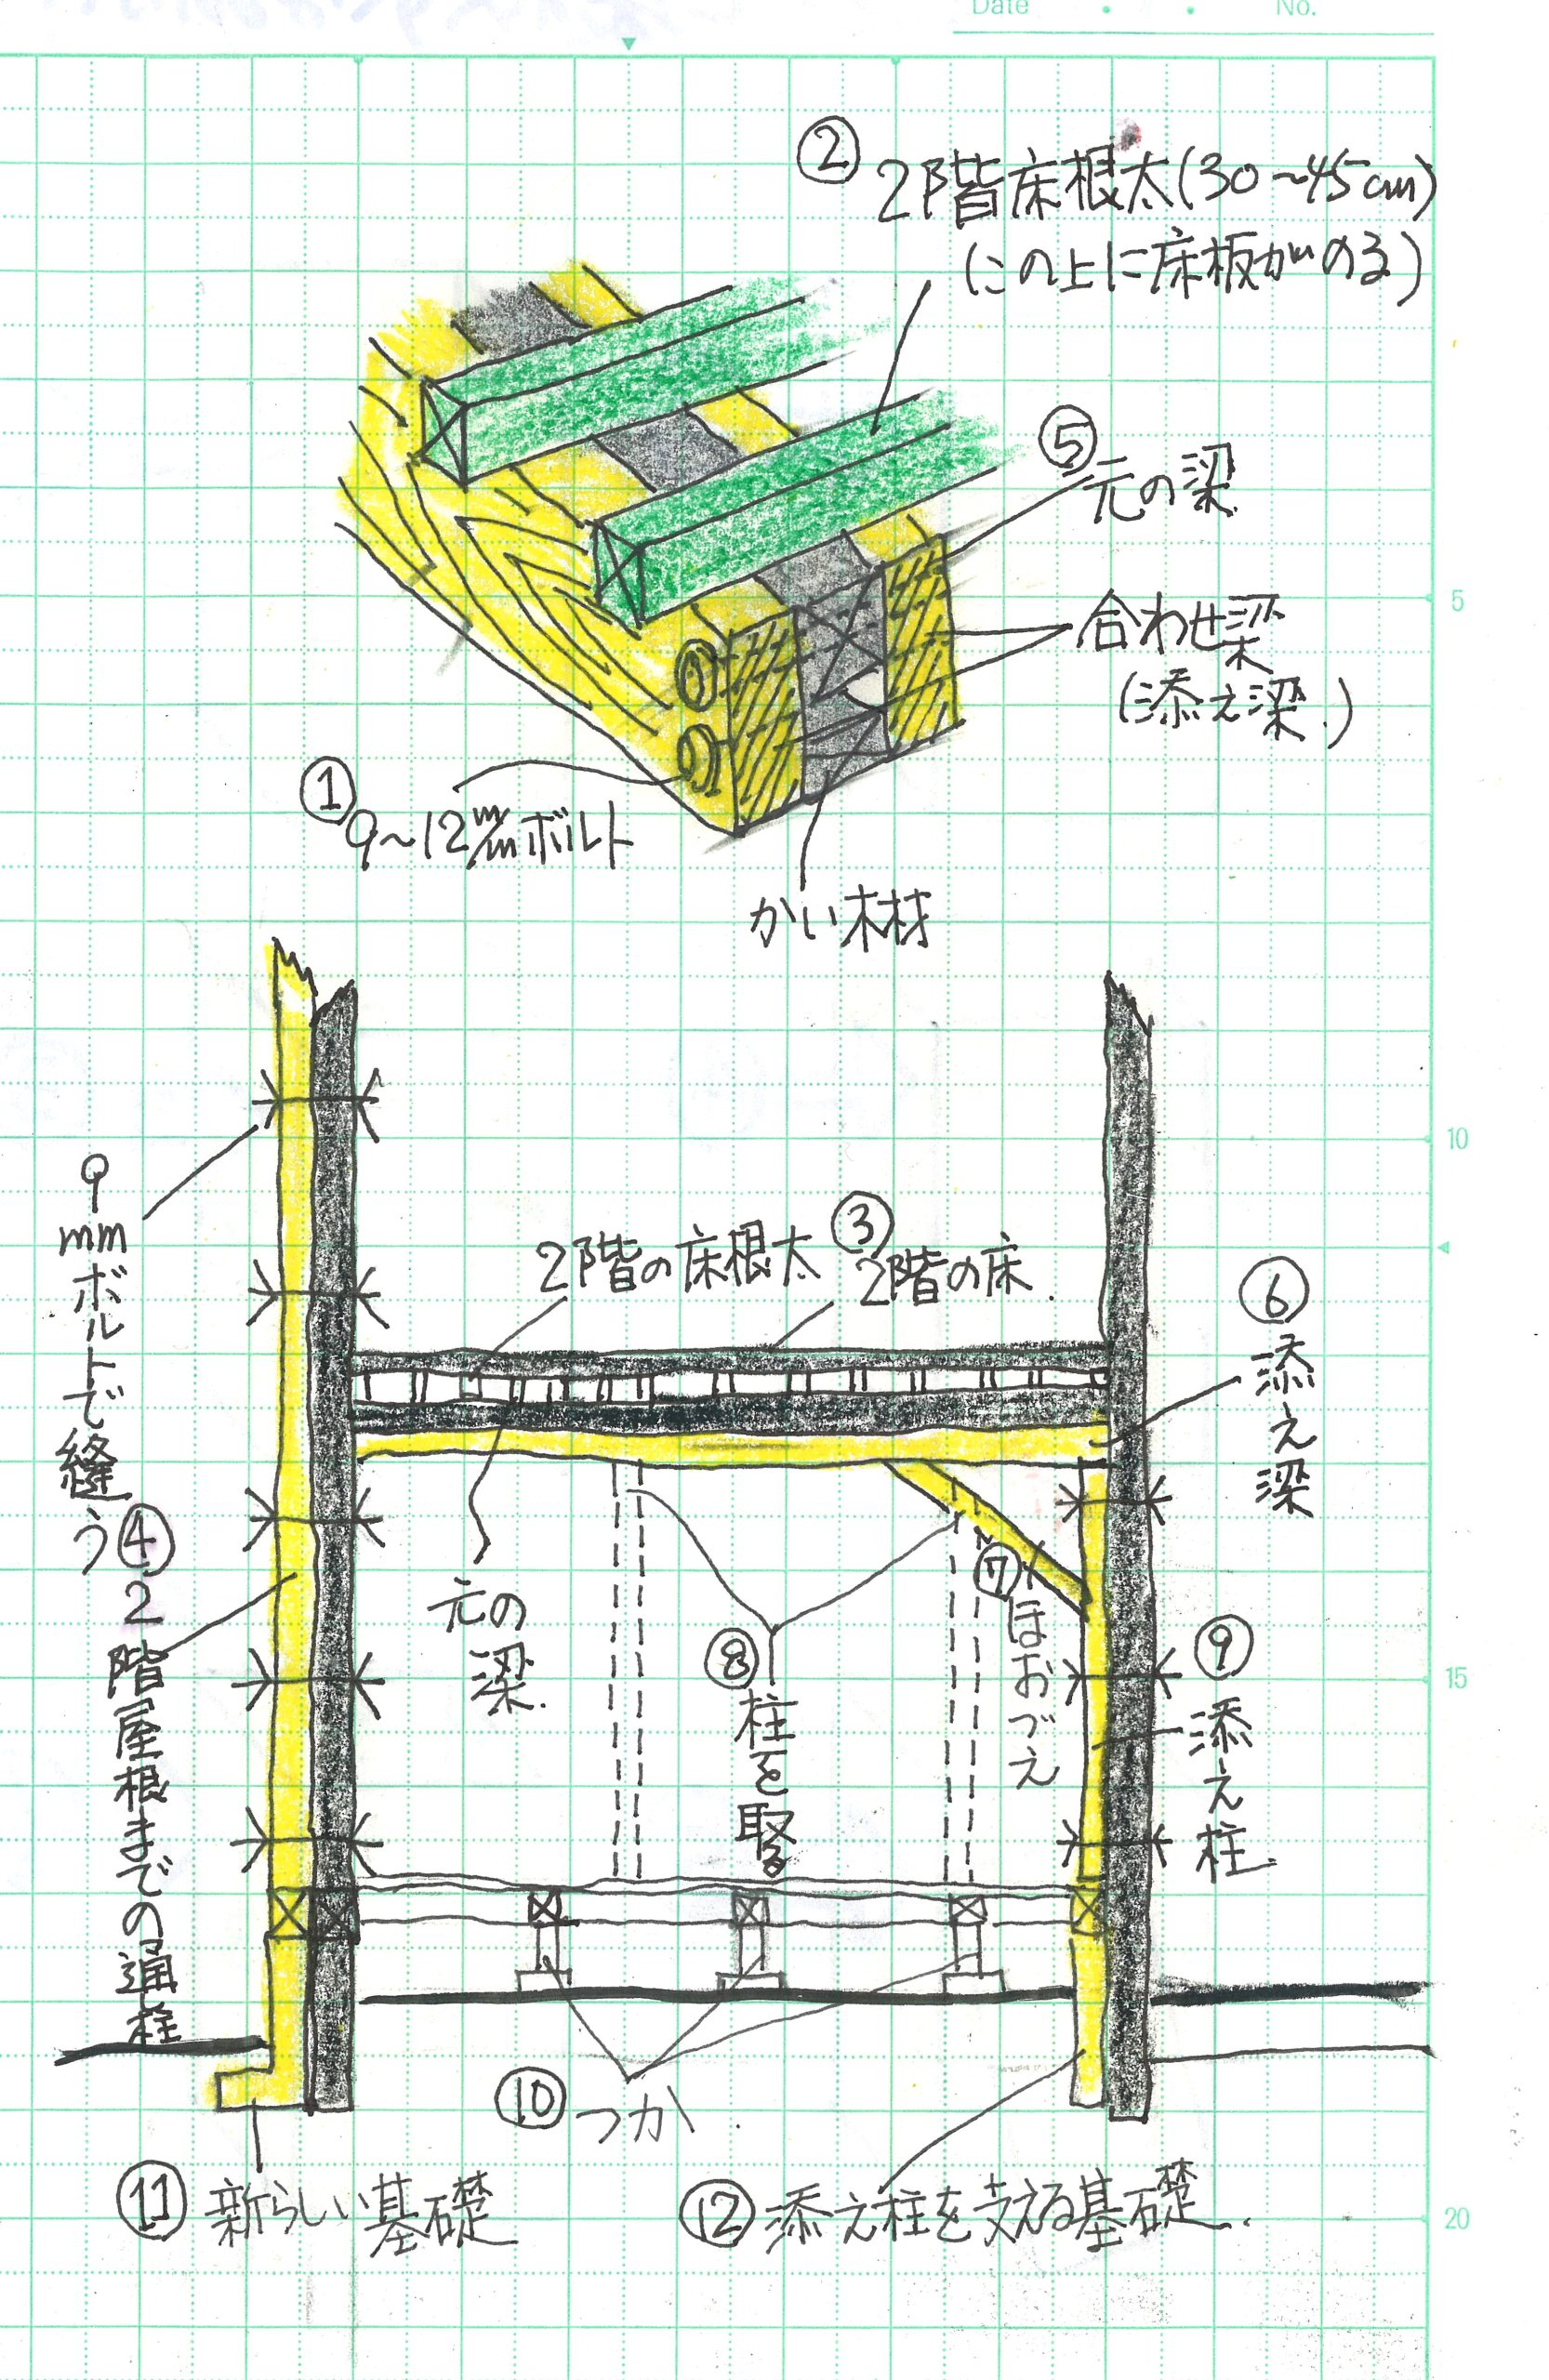 Date . . No.
② 2階床根太(30~45cm)
(この上に床板がのる)
⑤ 元の梁
5
合わせ梁
(添え梁.)
① 9~12m/mボルト
かい木材
10
9mmボルトで縫う
2階の床根太
③ 2階の床.
⑥ 添え梁
④ 2階屋根までの通柱
元の梁.
⑧ 柱を取る
⑦ ほおづえ
⑨ 添え柱.
15
⑩ つか.
⑪ 新らしい基礎
⑫ 添え柱を支える基礎.
20